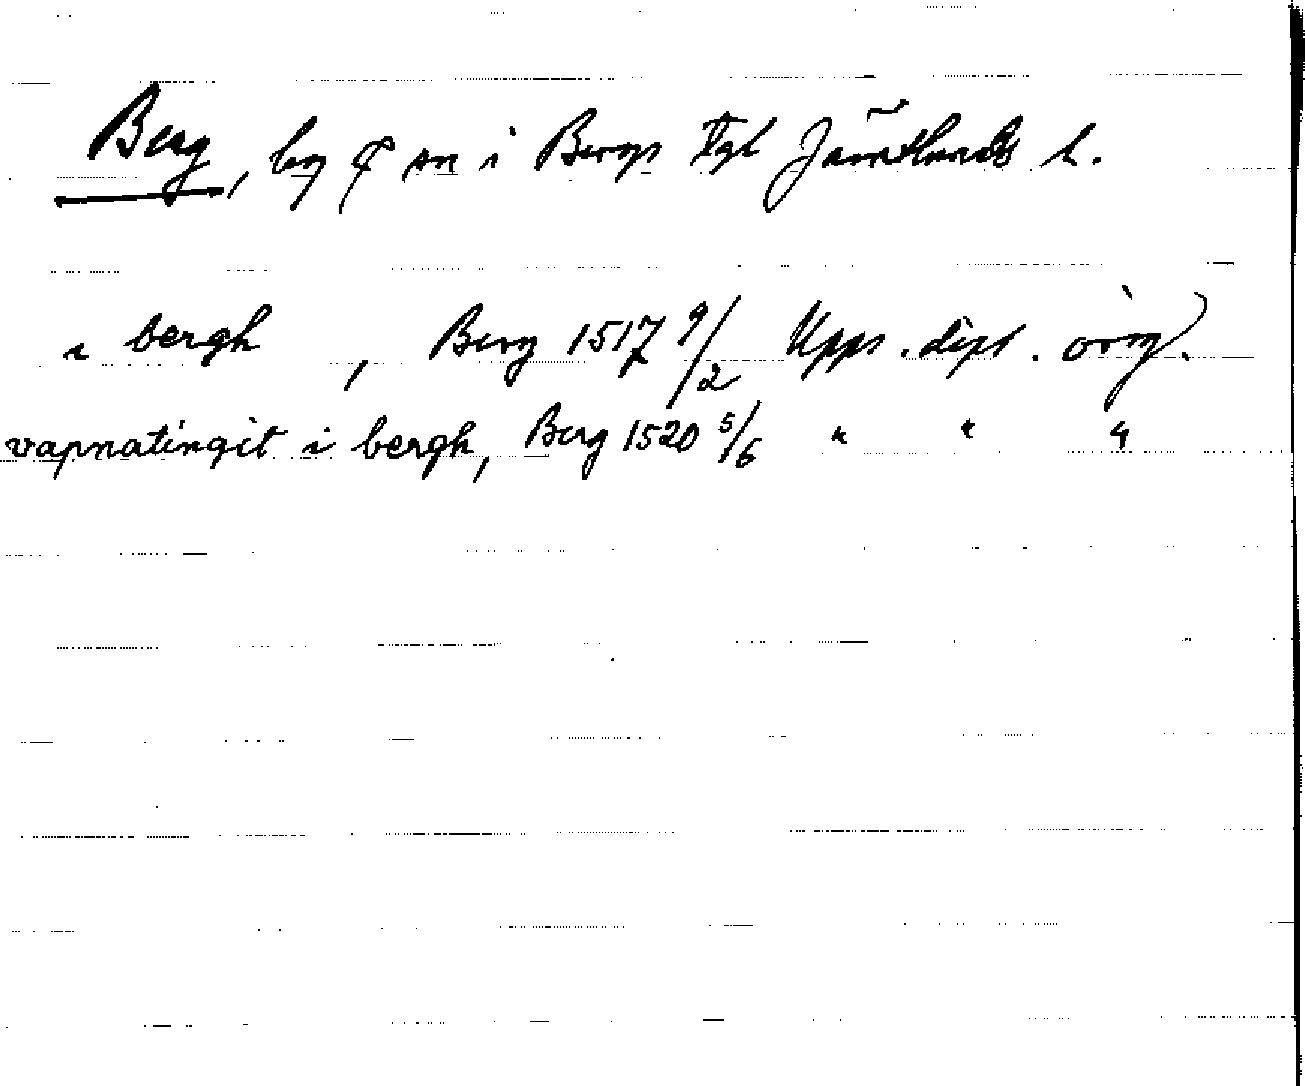 Berg, by o sn i Bergs tgl Jämtlands l.
i bergh , Berg 1517 9/2 Upps. dipl. orig.
vapnatingit i bergh, Berg 1520 5/6 " " "